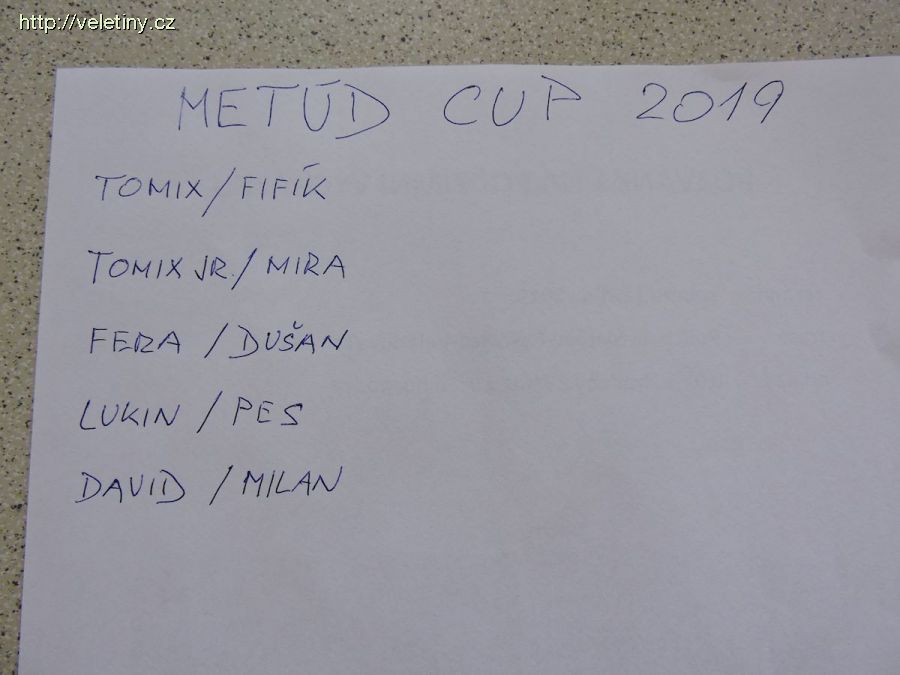 http://veletiny.cz
METÚD CUP 2019
TOMIX / FIFÍK
TOMIX JR. / MIRA
FERA / DUŠAN
LUKIN / PES
DAVID / MILAN